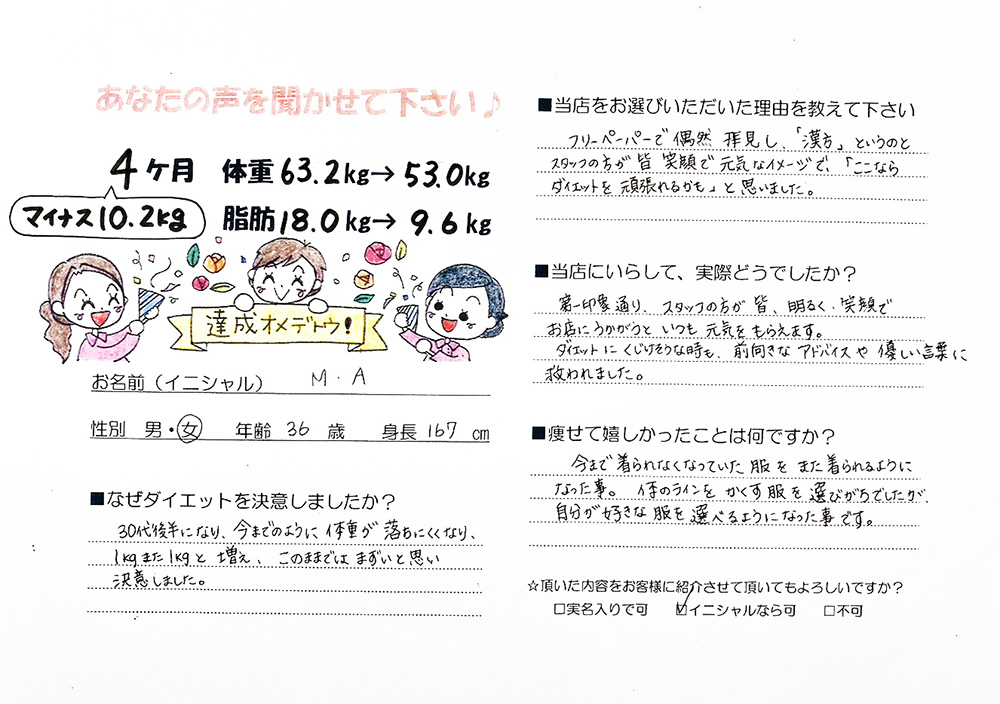 あなたの声を聞かせて下さい♪
4ヶ月 体重63.2kg→53.0kg
マイナス10.2kg
脂肪18.0kg→9.6kg
達成オメデトウ!
お名前(イニシャル) M.A
性別 男・女 年齢 36 歳 身長 167 cm
■なぜダイエットを決意しましたか?
30代後半になり、今までのように体重が落ちにくくなり、
1kgまた1kgと増え、このままではまずいと思い
決意しました。
■当店をお選びいただいた理由を教えて下さい
フリーペーパーで偶然拝見し、「漢方」というのと
スタッフの方が皆笑顔で元気なイメージで、「ここなら
ダイエットを頑張れるかも」と思いました。
■当店にいらして、実際どうでしたか?
第一印象通り、スタッフの方が皆、明るく、笑顔で
お店にうかがうといつも元気をもらえます。
ダイエットにくじけそうな時も、前向きなアドバイスや優しい言葉に
救われました。
■痩せて嬉しかったことは何ですか?
今まで着られなくなっていた服をまた着られるように
なった事。体のラインをかくす服を選びがちでしたが、
自分が好きな服を選べるようになった事です。
☆頂いた内容をお客様に紹介させて頂いてもよろしいですか?
□実名入りで可 ☑イニシャルなら可 □不可